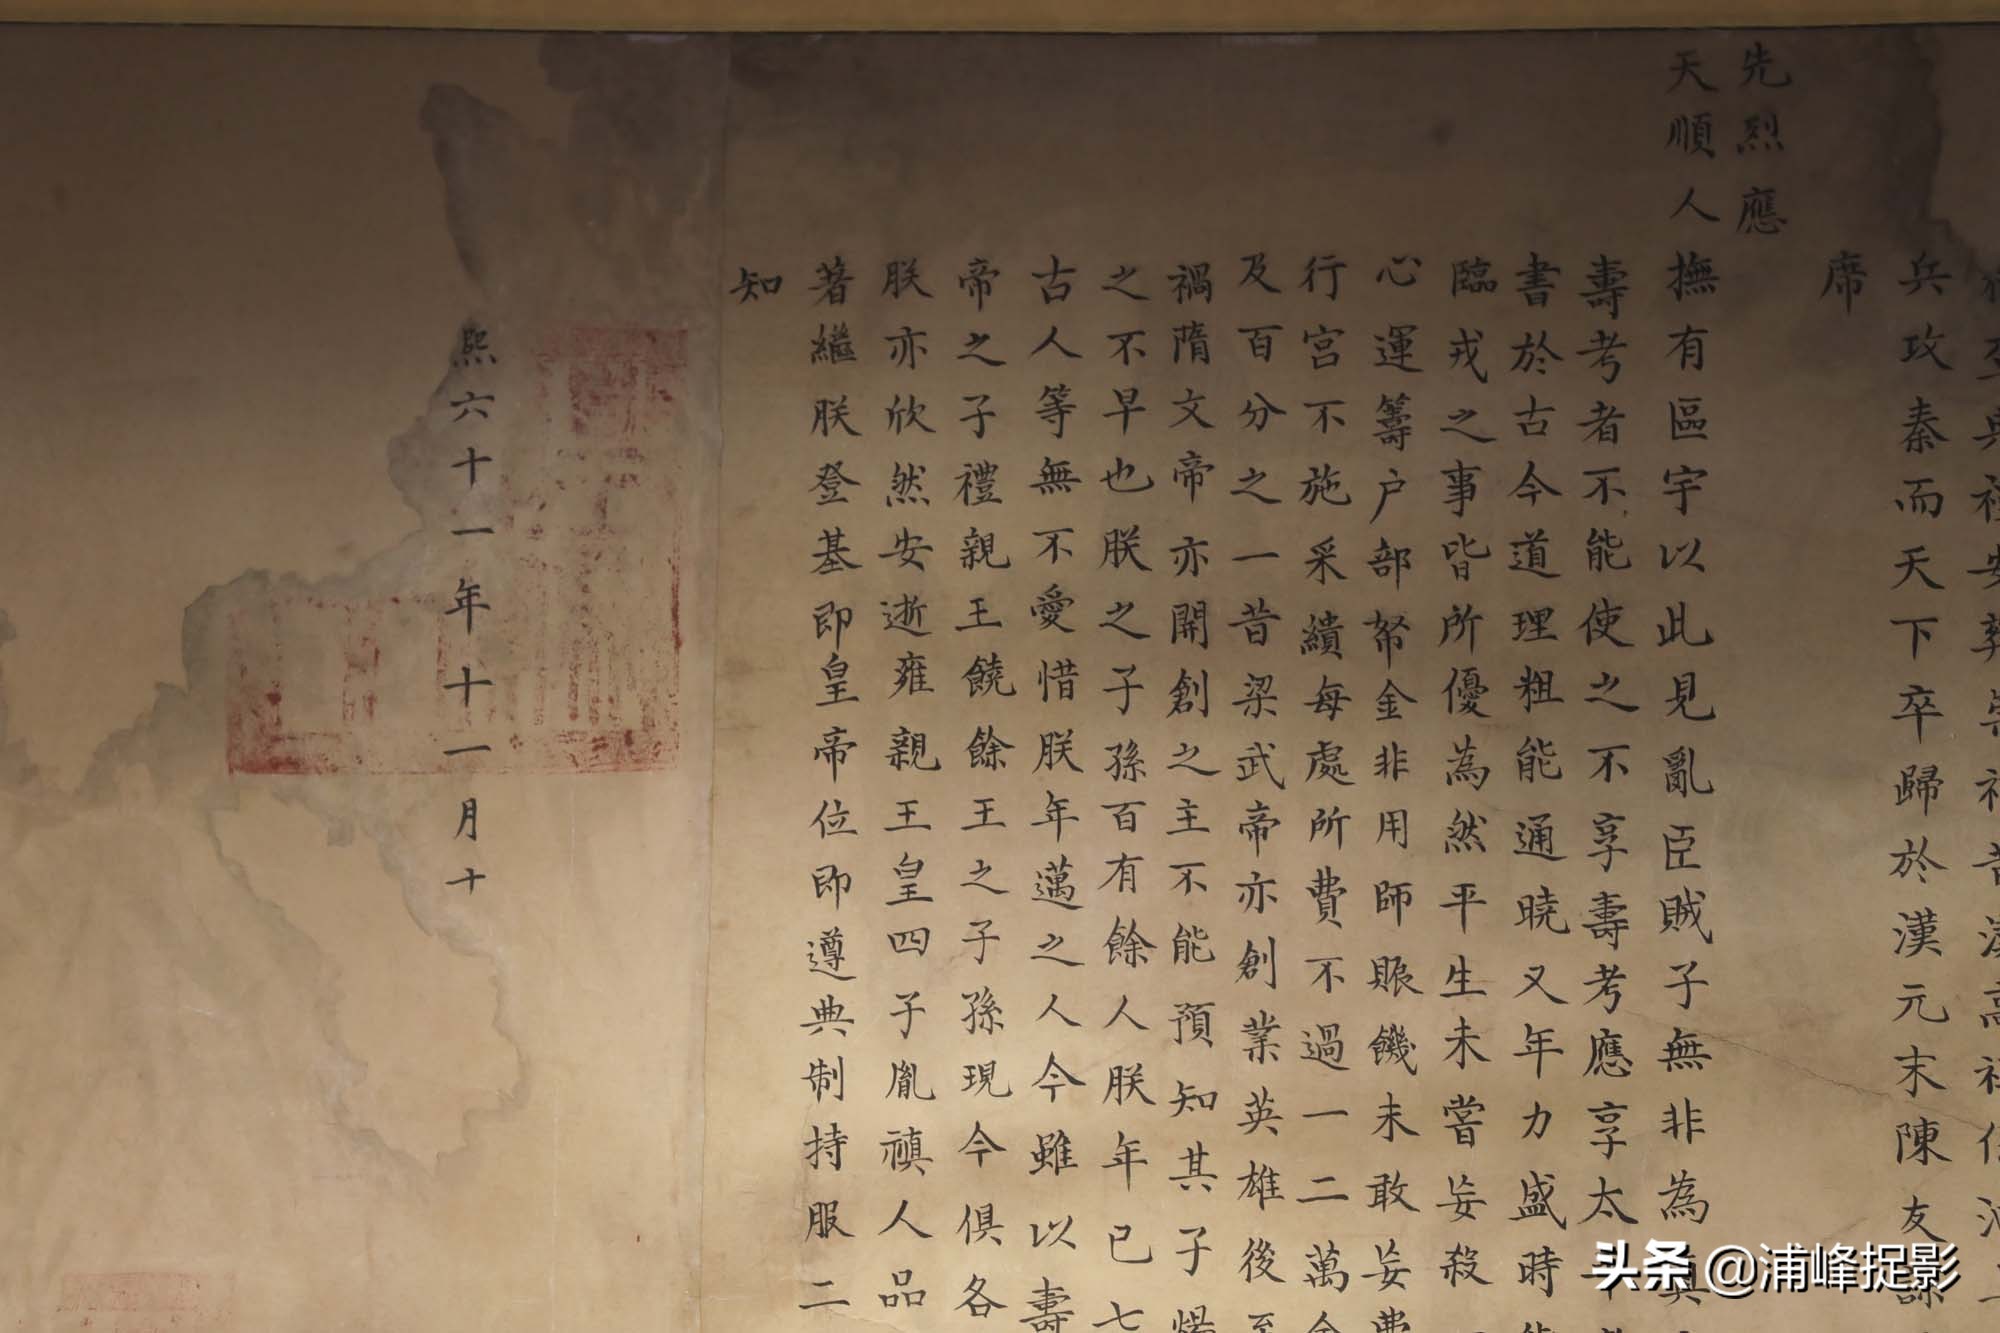 至典禮安葬崇祀昔漢高祖係泗上
兵攻秦而天下卒歸於漢元末陳友諒
席
先烈應
天順人
撫有區宇以此見亂臣賊子無非為真
壽考者不能使之不享壽考應享太平
書於古今道理粗能通曉又年力盛時能
臨戎之事皆所優為然平生未嘗妄殺一
心運籌户部帑金非用師賑饑未敢妄費
行宮不施采繢每處所費不過一二萬金
及百分之一昔梁武帝亦創業英雄後至
禍隋文帝亦開創之主不能預知其子煬
之不早也朕之子孫百有餘人朕年已七
古人等無不愛惜朕年邁之人今雖以壽
帝之子禮親王饒餘王之子孫現今俱各
朕亦欣然安逝雍親王皇四子胤禛人品
著繼朕登基即皇帝位即遵典制持服二
知
熙六十一年十一月十
头条 @浦峰捉影